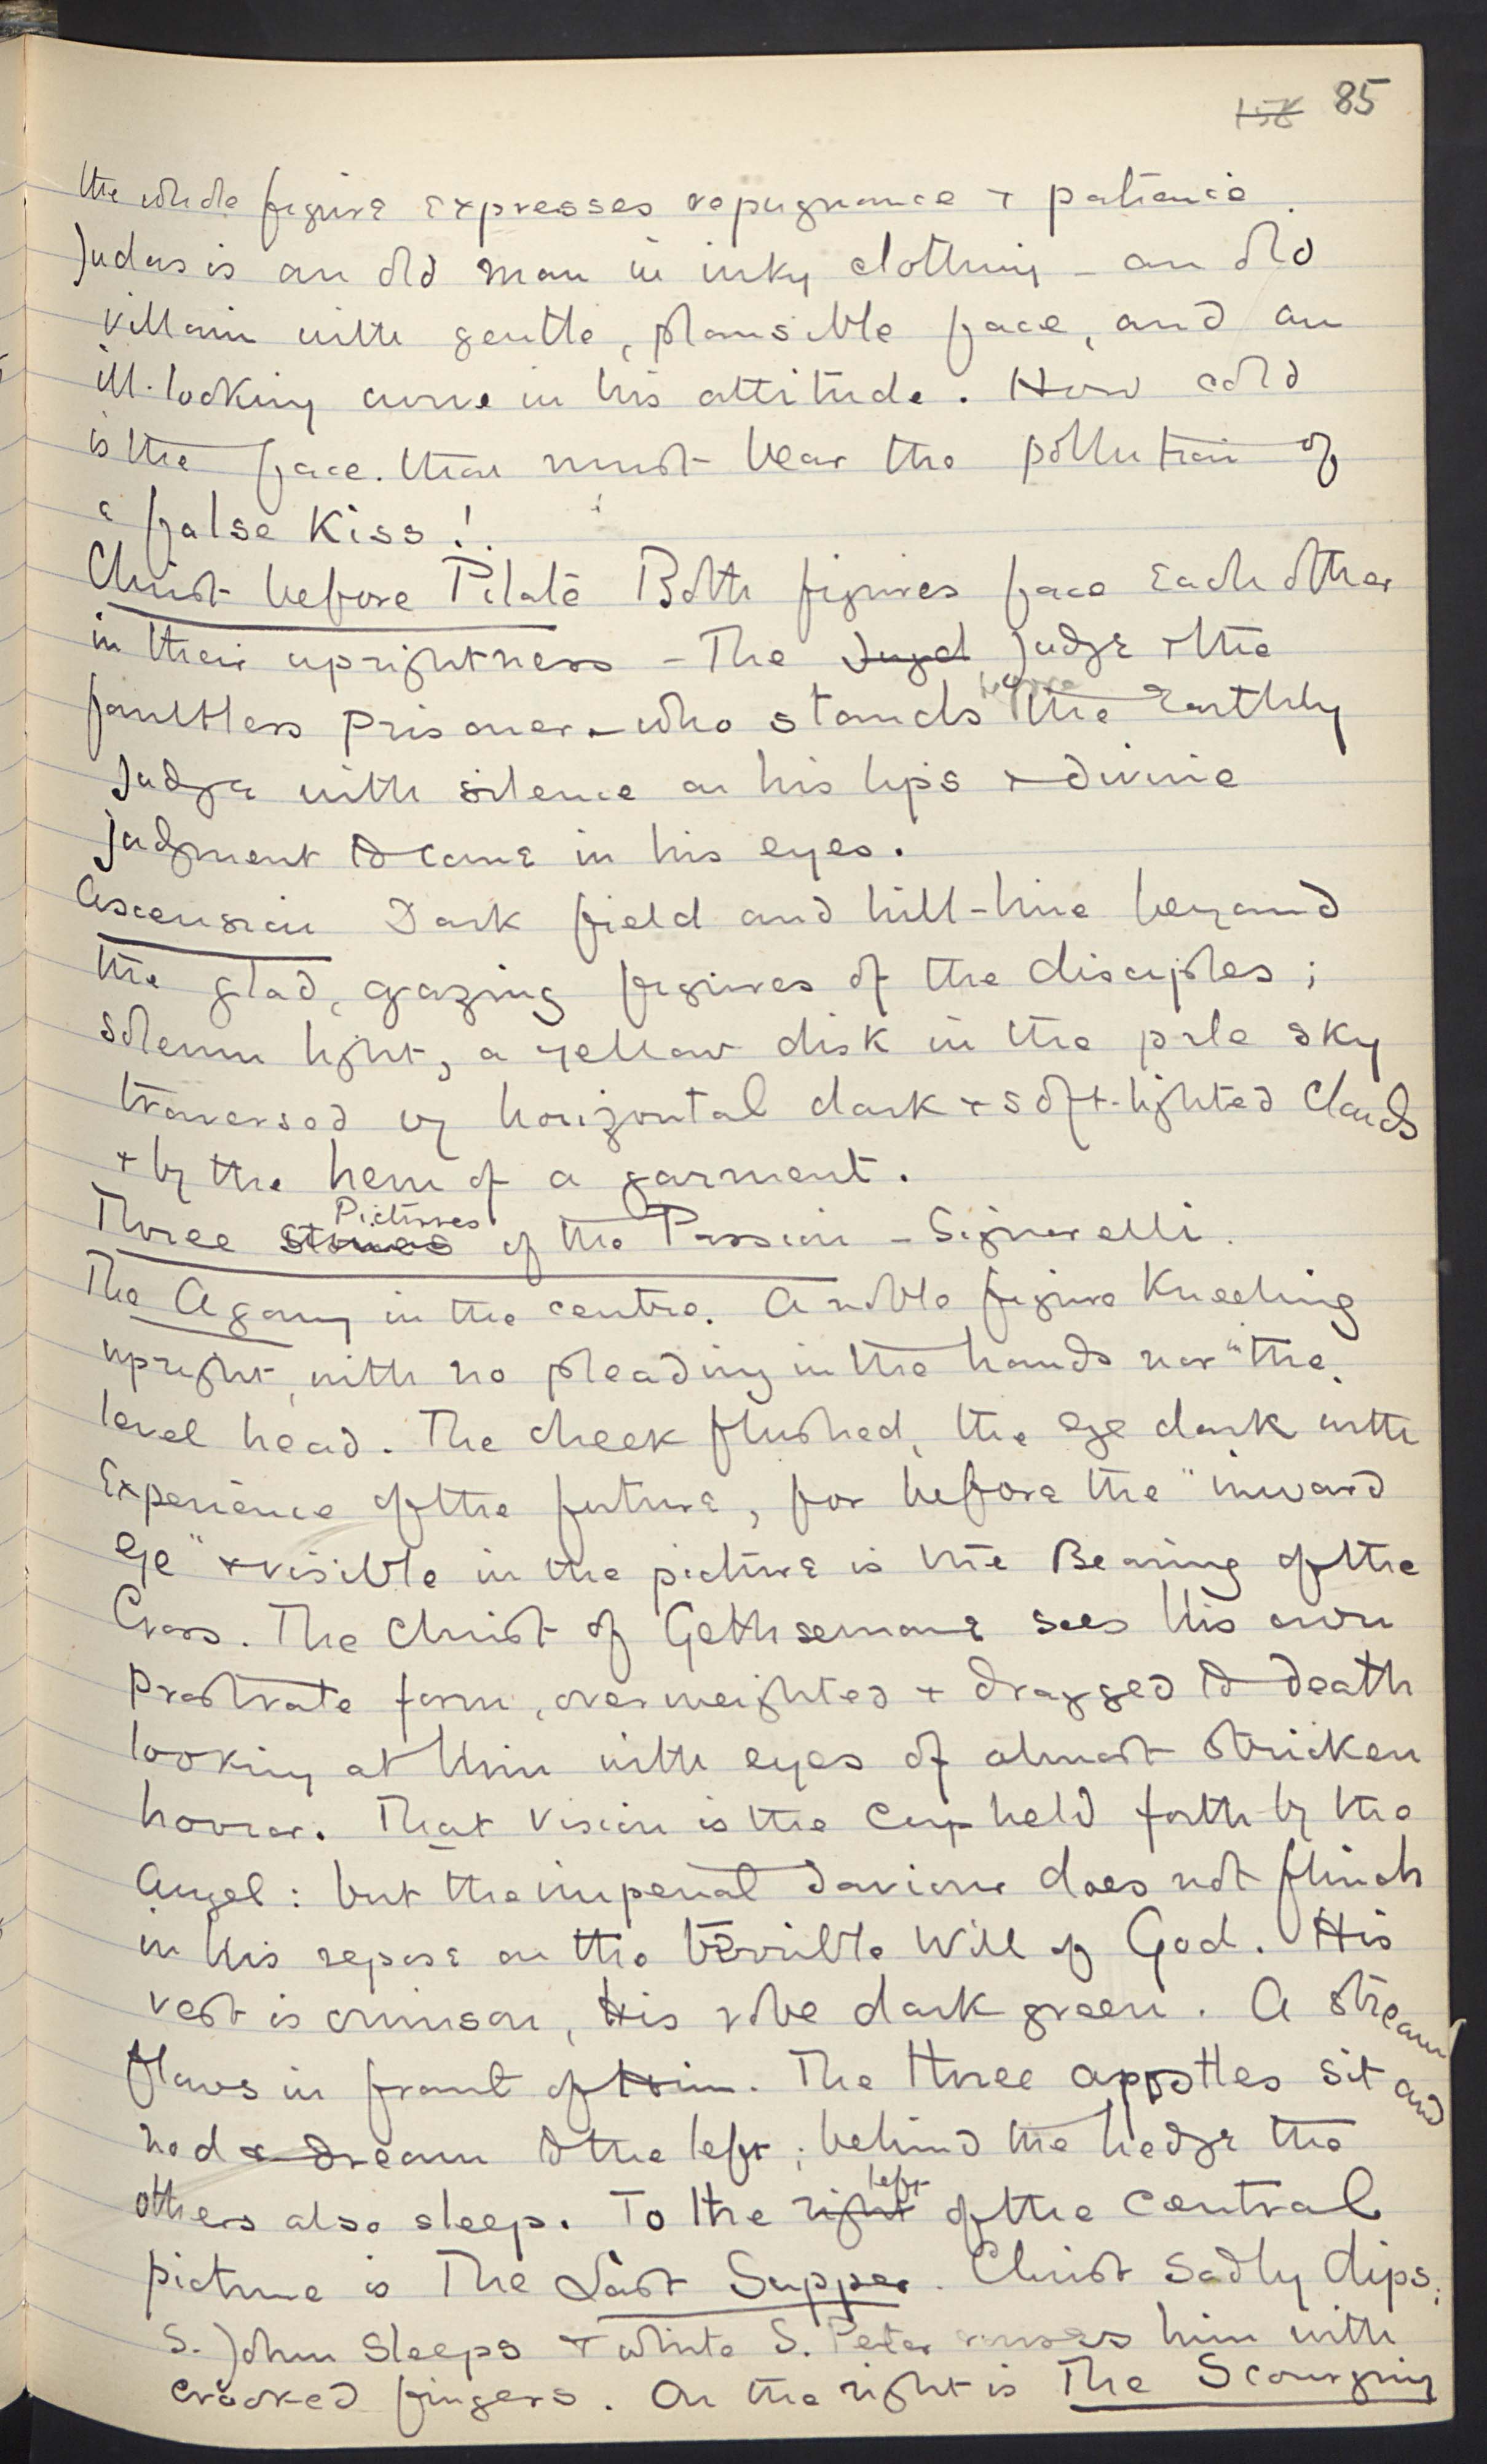 85
the whole figure expresses repugnance + patience.
Judas is an old man in inky clothing – an old
villain with gentle, plausible face, and an
ill-looking curve in his attitude. How cold
is the face that must bear the pollution of
a false kiss!
Christ before Pilate Both figures face each other
in their uprightness – The Jugd Judge + the
faultless prisoner – who stands before the Earthly
Judge with silence on his lips + divine
judgment to come in his eyes.
Ascension Dark field and hill-line beyond
the glad, gazing figures of the disciples;
solemn light, a yellow disk in the pale sky
traversed by horizontal dark + soft-lighted clouds
+ by the hem of a garment.
Three Pictures of the Passion – Signorelli.
The Agony in the centre. A noble figure kneeling
upright, with no pleading in the hands nor in the
level head. The cheek flushed, the eye dark with
Experience of the future, for before the "inward
eye" + visible in the picture is the Bearing of the
Cross. The Christ of Gethsemane sees His own
prostrate form, overweighted + dragged to death
looking at Him with eyes of almost stricken
horror. That vision is the Cup held forth by the
Angel: but the imperial Saviour does not flinch
in His repose on the terrible Will of God. His
vest is crimson, His robe dark green. A stream
flows in front of Him. The three appostles sit and
nod + dream to the left; behind the hedge the
others also sleep. To the right left of the central
picture is The Last Supper. Christ sadly dips;
S. John sleeps + white S. Peter rouses him with
crooked fingers. On the right is The Scourging